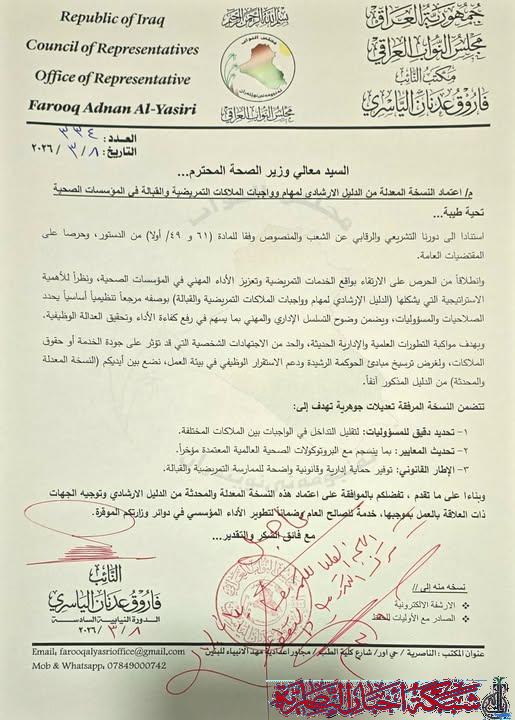 Republic of Iraq
Council of Representatives
Office of Representative
Farooq Adnan Al-Yasiri
بسم الله الرحمن الرحيم
مجلس النواب
مجلس النواب العراقي
جمهورية العراق
مجلس النواب العراقي
مكتب النائب
فاروق عدنان الياسري
العدد: ٣٣٤
التاريخ: ٣/٨ / ٢٠٢٦
السيد معالي وزير الصحة المحترم...
م/ اعتماد النسخة المعدلة من الدليل الارشادي لمهام وواجبات الملاكات التمريضية والقبالة في المؤسسات الصحية
تحية طيبة...
استنادا الى دورنا التشريعي والرقابي عن الشعب والمنصوص وفقا للمادة (٦١ و ٤٩/ أولا) من الدستور، وحرصا على
المقتضيات العامة.
وانطلاقاً من الحرص على الارتقاء بواقع الخدمات التمريضية وتعزيز الأداء المهني في المؤسسات الصحية، ونظراً للأهمية
الاستراتيجية التي يشكلها (الدليل الإرشادي لمهام وواجبات الملاكات التمريضية والقبالة) بوصفه مرجعاً تنظيمياً أساسياً يحدد
الصلاحيات والمسؤوليات، ويضمن وضوح التسلسل الإداري والمهني بما يسهم في رفع كفاءة الأداء وتحقيق العدالة الوظيفية.
وبهدف مواكبة التطورات العلمية والإدارية الحديثة، والحد من الاجتهادات الشخصية التي قد تؤثر على جودة الخدمة أو حقوق
الملاكات، ولغرض ترسيخ مبادئ الحوكمة الرشيدة ودعم الاستقرار الوظيفي في بيئة العمل، نضع بين أيديكم (النسخة المعدلة
والمحدثة) من الدليل المذكور آنفاً.
تتضمن النسخة المرفقة تعديلات جوهرية تهدف إلى:
١- تحديد دقيق للمسؤوليات: لتقليل التداخل في الواجبات بين الملاكات المختلفة.
٢- تحديث المعايير: بما ينسجم مع البروتوكولات الصحية العالمية المعتمدة مؤخراً.
٣- الإطار القانوني: توفير حماية إدارية وقانونية واضحة للممارسة التمريضية والقبالة.
وبناءا على ما تقدم ، تفضلكم بالموافقة على اعتماد هذه النسخة المعدلة والمحدثة من الدليل الارشادي وتوجيه الجهات
ذات العلاقة بالعمل بموجبها، خدمة للصالح العام وضمانا لتطوير الأداء المؤسسي في دوائر وزارتكم الموقرة.
مع فائق الشكر والتقدير...
النائب
فاروق عدنان الياسري
الدورة النيابية السادسة
٢٠٢٦/٣/٨
نسخه منه إلى //
الارشفة الالكترونية
الصادر مع الأوليات للحفظ
Email: farooqalyasrioffice@gmail.com
Mob & Whatsapp: 07849000742
عنوان المكتب : الناصرية / حي اور/ شارع كلية الطب/ مجاور اعدادية مهد الانبياء للبنين
شبكة اخبار الناصرية